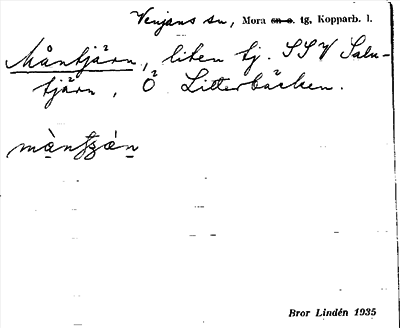 Venjans sn, Mora sn o. tg, Kopparb. l.
Måntjärn, liten tj. SSV Saln-
tjärn, Ö Litterbäcken.
Bror Lindén 1935